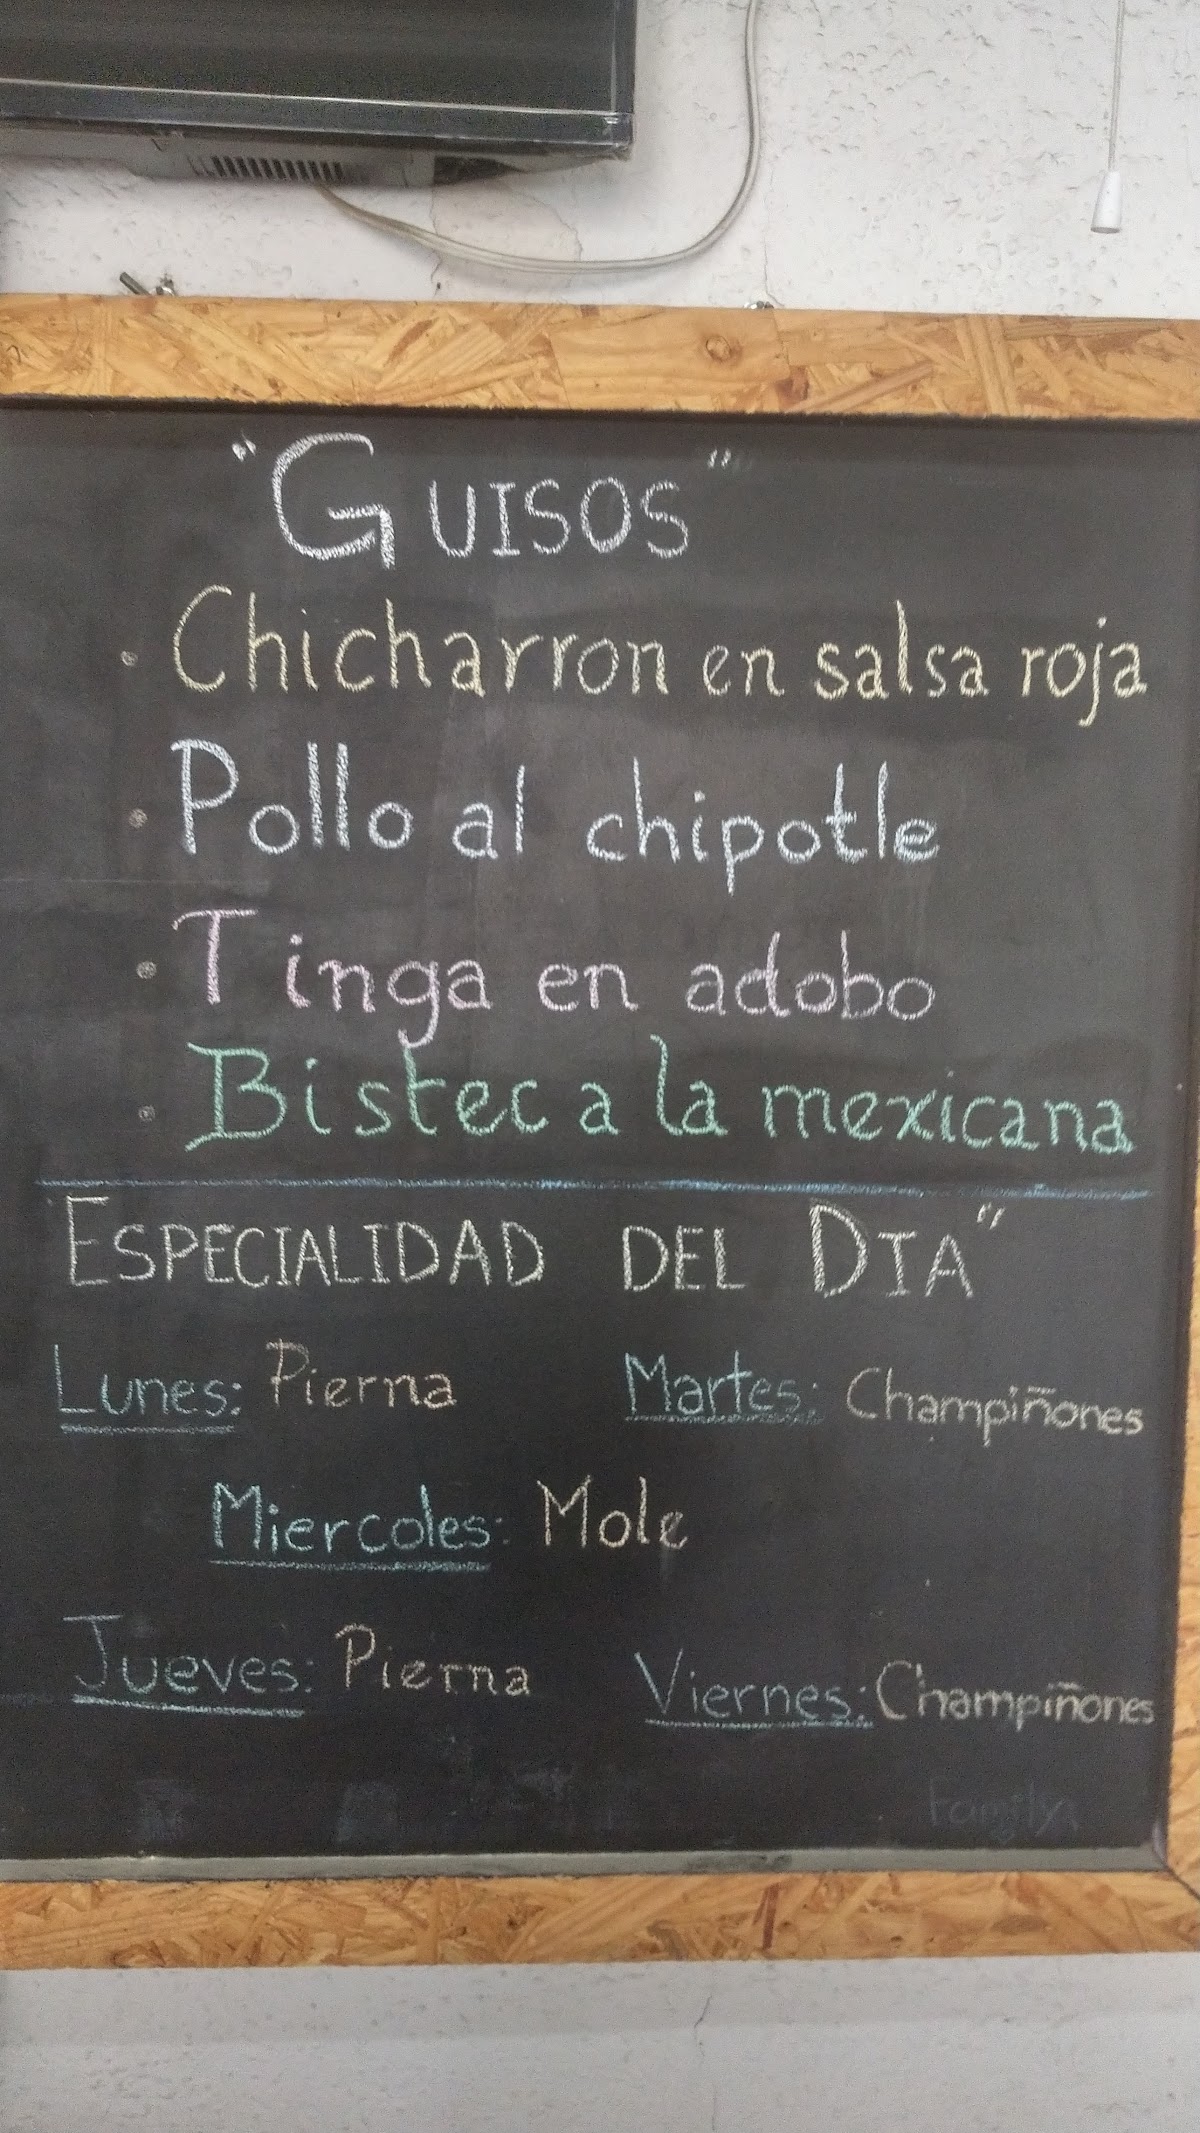 "GUISOS"
· Chicharron en salsa roja
· Pollo al chipotle
· Tinga en adobo
· Bistec a la mexicana
ESPECIALIDAD DEL DIA"
Lunes: Pierna Martes: Champiñones
Miercoles: Mole
Jueves: Pierna Viernes: Champiñones
Family